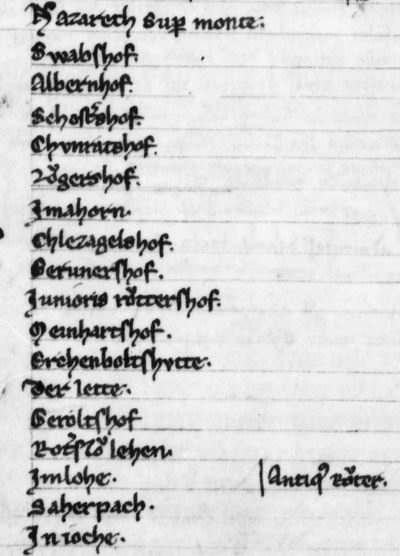 Nazareth sup monte.
Swabshof.
Albernhof.
Schostshof.
Chvnratshof.
Rögershof.
Jmahorn.
Chlezagelshof.
Berunershof.
Junioris röttershof.
Meinhartshof.
Erchenboltshvtte.
Der lette.
Geroltshof
lehen.
Jmlohe. Antiqȝ röter.
Saherpach.
Jn ioche.